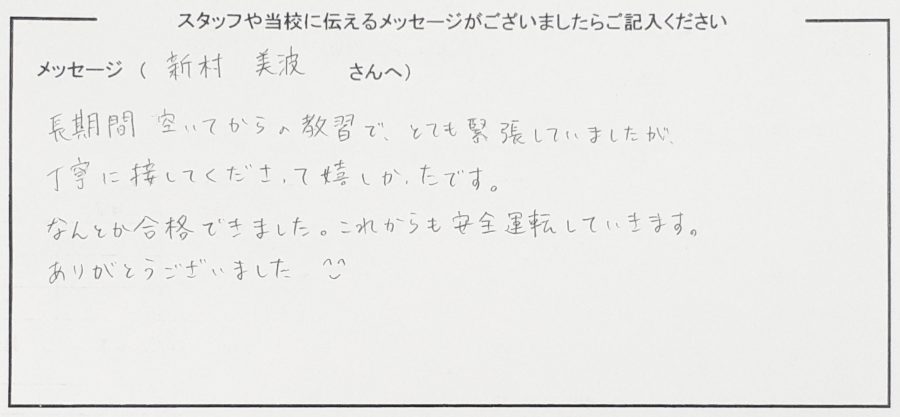 スタッフや当校に伝えるメッセージがございましたらご記入ください
メッセージ ( 新村 美波 さんへ)
長期間 空いてからの教習で、とても緊張していましたが、
丁寧に接してくださって嬉しかったです。
なんとか合格できました。これからも安全運転していきます。
ありがとうございました ^^